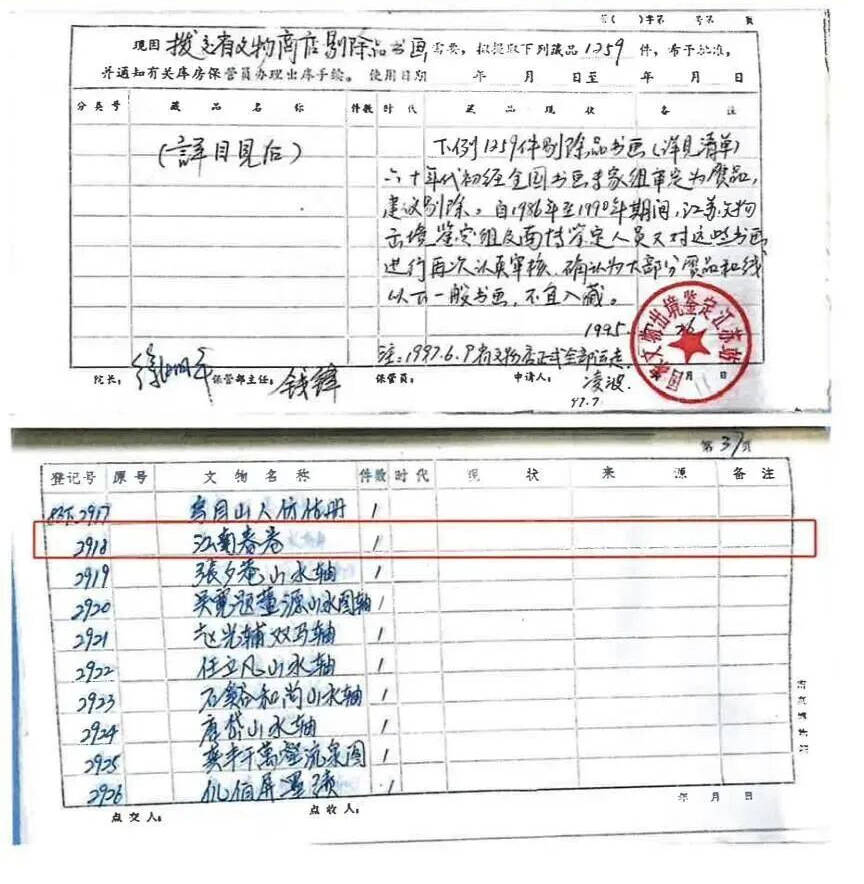 第( )字第 号第 页
现因 拨交省文物商店剔除品书画 需要，拟提取下列藏品1259件，希予批准，
并通知有关库房保管员办理出库手续。使用日期 年 月 日至 年 月 日
分类号 藏品名称 件数 时代 藏品现状 备注
(詳目見后)
下列1259件剔除品书画(详见清单)
六十年代初经全国书画专家组审定为赝品，
建议剔除。自1986年至1990年期间，江苏文物
出境鉴定组及南博鉴定人员又对这些书画
进行再次认真审核，确认为大部分赝品和线
以下一般书画，不宜入藏。
1995 5 26
国家文物出境鉴定江苏站
注：1997.6.9省文物店正式全部运走
院长： 徐湖平 保管部主任： 钱锋 保管员： 申请人： 凌波 年 月 日
97.7.
第37页
登记号 原号 文物名称 件数 时代 现状 来源 备注
2917 乌目山人仿古册 1
2918 江南春卷 1
2919 張夕菴山水轴 1
2920 吴寬題董源山水图轴 1
2921 赵光辅双马轴 1
2922 任立凡山水轴 1
2923 石谿和尚山水轴 1
2924 唐岱山水轴 1
2925 千萬壑流泉图 1
2926 屏墨 1
年 月 日
点交人： 点收人：